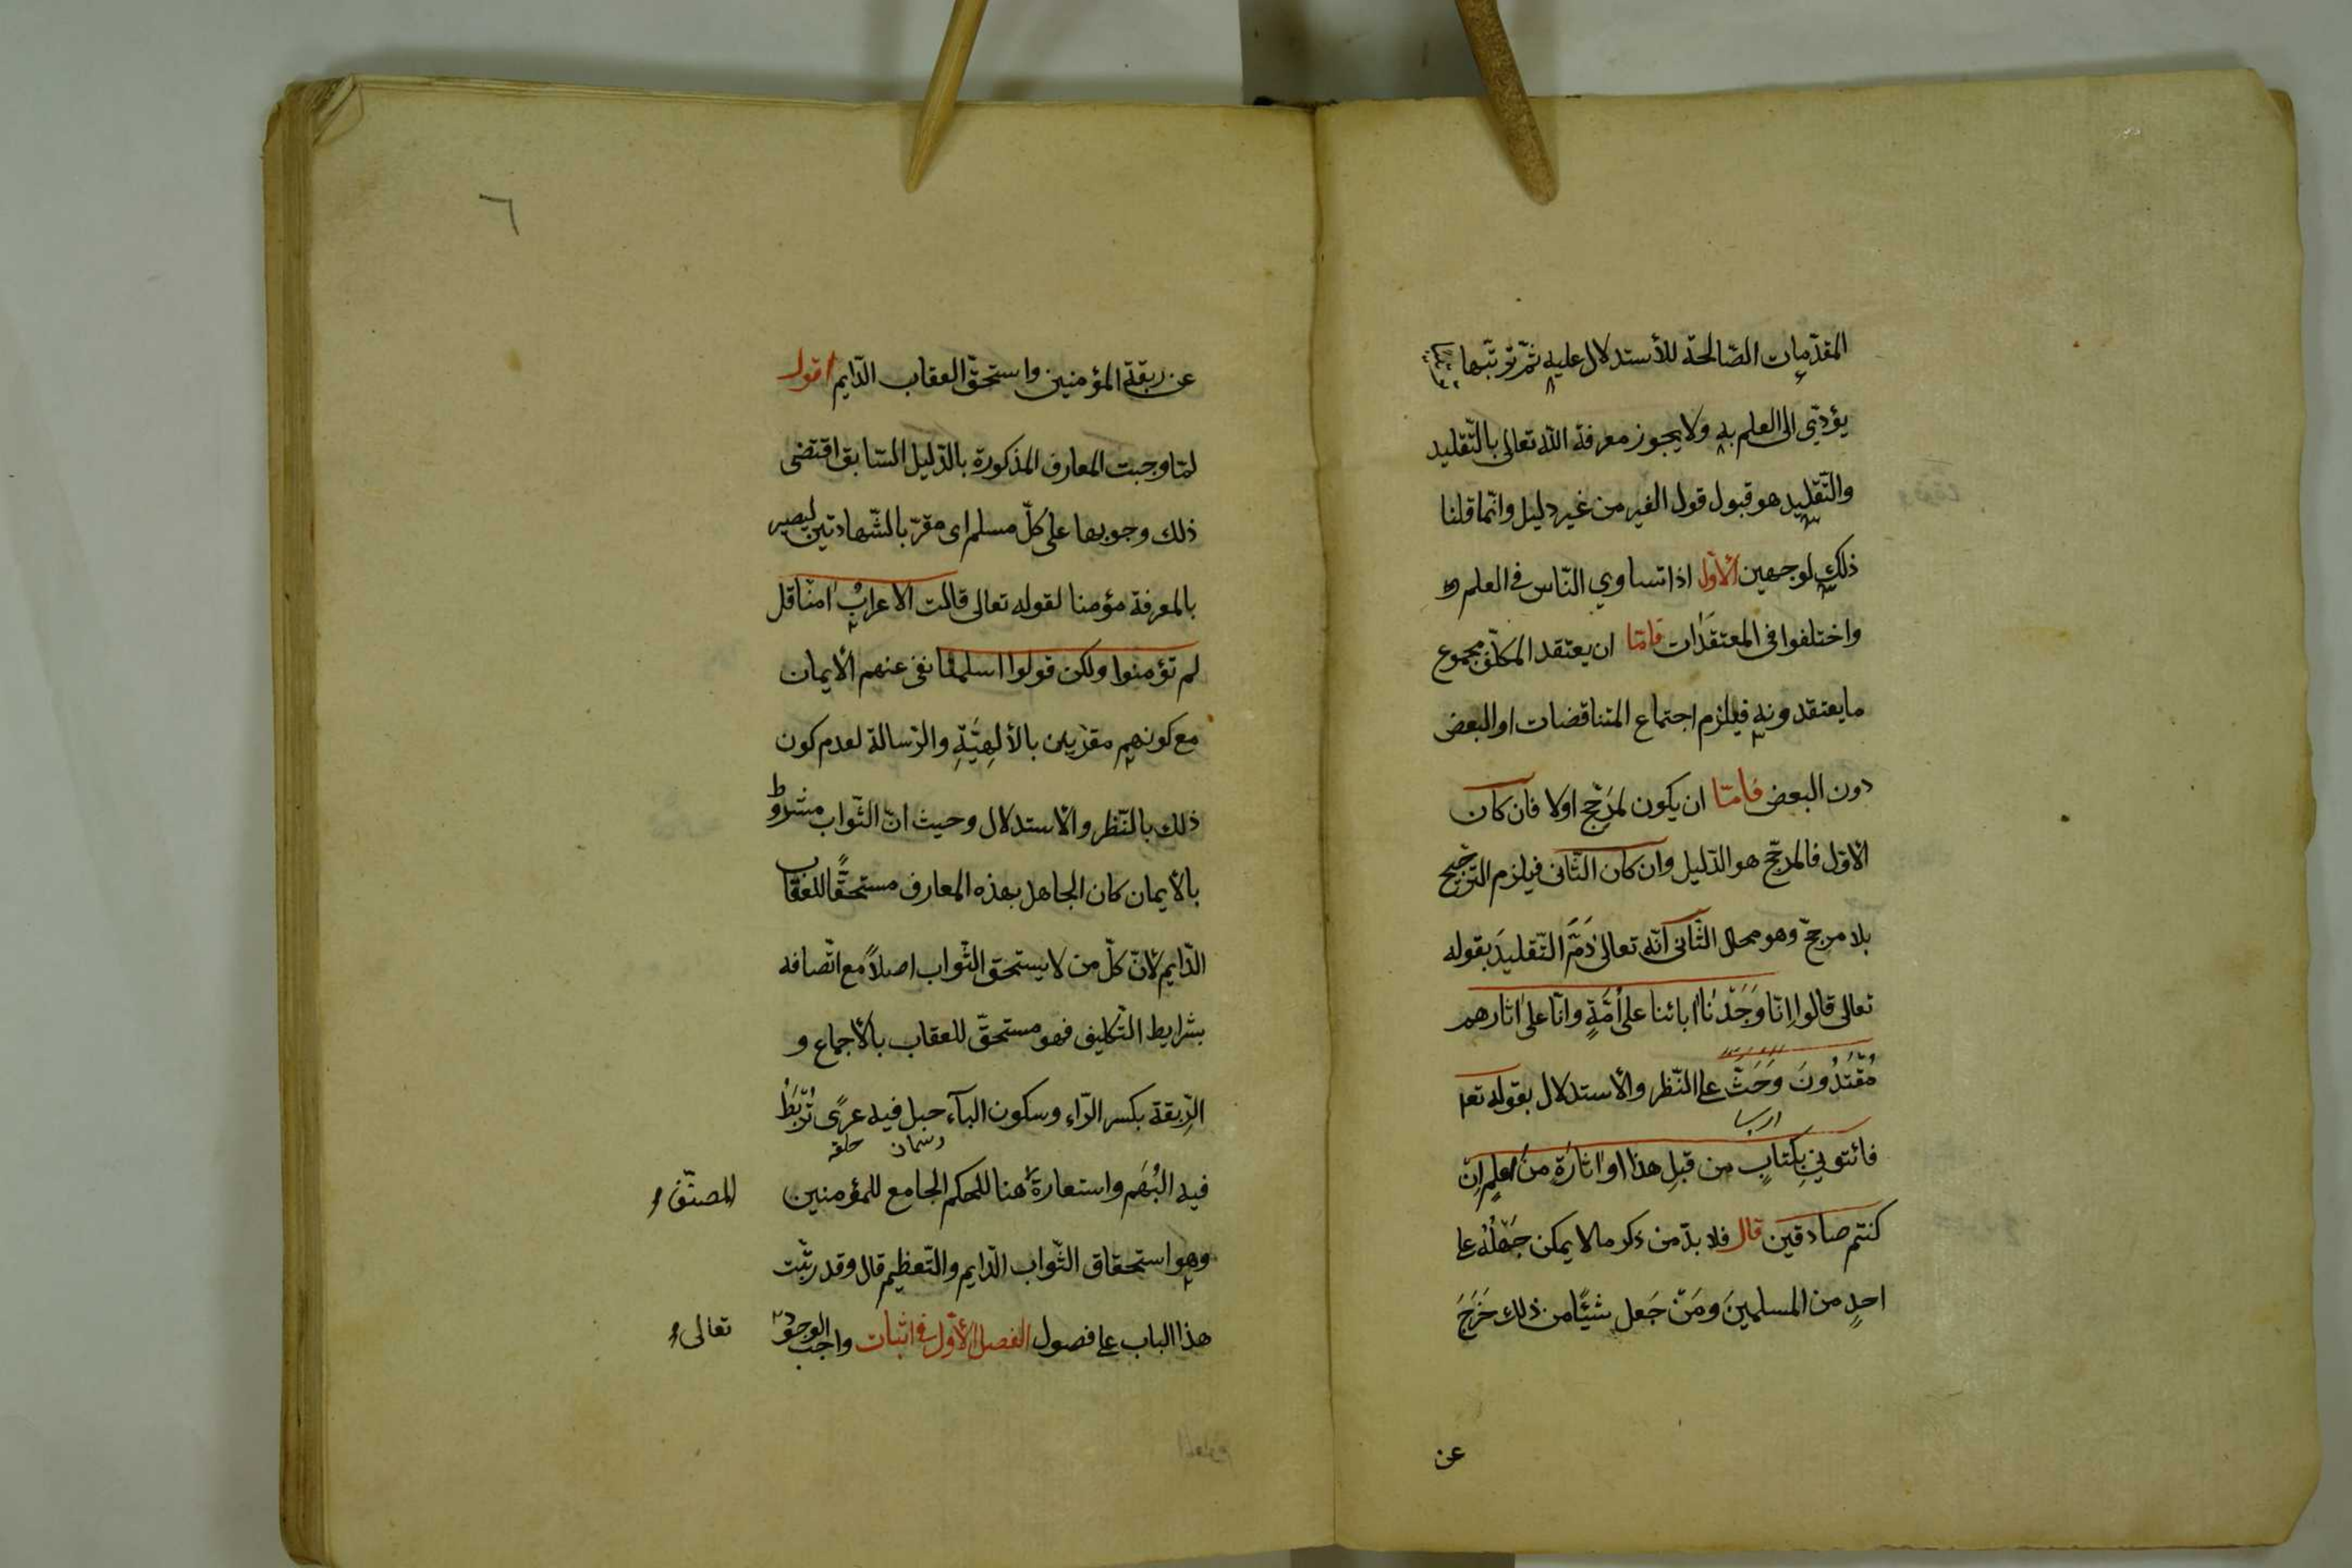 المقدّمات الصّالحة للأستدلال عليه ثمّ ترتّبها
يؤدّي الى العلم به ولا يجوز معرفة الله تعالى بالتّقليد
والتّقليد هو قبول قول الغير من غير دليل وانّما قلنا
ذلك لوجهين الأوّل اذا تساوي النّاس في العلم
واختلفوا في المعتقدات فامّا ان يعتقد المكلّف مجموع
ما يعتقدونه فيلزم اجتماع المتناقضات او البعض
دون البعض فامّا ان يكون لمرَجّح اولا فان كان
الاوّل فالمرجّح هو الدّليل وان كان الثّاني فيلزم التّرجيح
بلا مرجحّ وهو محال الثّاني انّه تعالى ذَمَّ التّقليدَ بقوله
تعالى قالوا اِنّا وَجَدْنٰا اٰبائنا على اُمَّةٍ وانّا على اثارهم
مُقْتَدُونَ وَحَثّ على النّظر والأستدلال بقوله تعا
فائتوني بِكتابٍ من قبلِ هذا او اثارَةٍ مِنْ علمٍ اِنْ
كنتم صادقين قال فلا بدّ من ذكر ما لا يمكن جَهْلُهُ على
احدٍ من المسلمينَ ومَنْ جَهل شيئًا من ذلك خَرَجَ
عن
٦
عن ربقة المؤمنين واستحقّ العقاب الدّايم اقول
لمّا وجبت المعارف المذكورة بالدّليل السّابق اقتضى
ذلك وجوبها على كلّ مسلم اى مقرّ بالشّهادتين ليصير
بالمعرفة مؤمنا لقوله تعالى قالت الاعرابُ اٰمنّا قل
لم تؤمنوا ولكن قولوا اسلمنا نفى عنهم الأيمان
مع كونهم مقرّين بالألهِيَّةِ والرّسالة لعدم كون
ذلك بالنّظر والأستدلال وحيث انّ الثّواب مشروط
بالأيمان كان الجاهل بهذه المعارف مستحقًّا للعقاب
الدّايم لأنّ كلّ من لا يستحق الثّواب اصلاً مع اتّصافه
بشرايط التّكليف فهو مستحقّ للعقاب بالأجماع و
الرِّبقة بكسر الرّاء وسكون البآء حبل فيه عرًى تُرْبَطُ
رسمان حلقه
فيه البُهَم واستعارة هنا للحكم الجامع للمؤمنين
المصنّف
وهو استحقاق الثّواب الدّايم والتّعظيم قال وقد رتّبت
هذا الباب على فصول الفصل الأوّل في اثبات واجب الوجود
تعالى